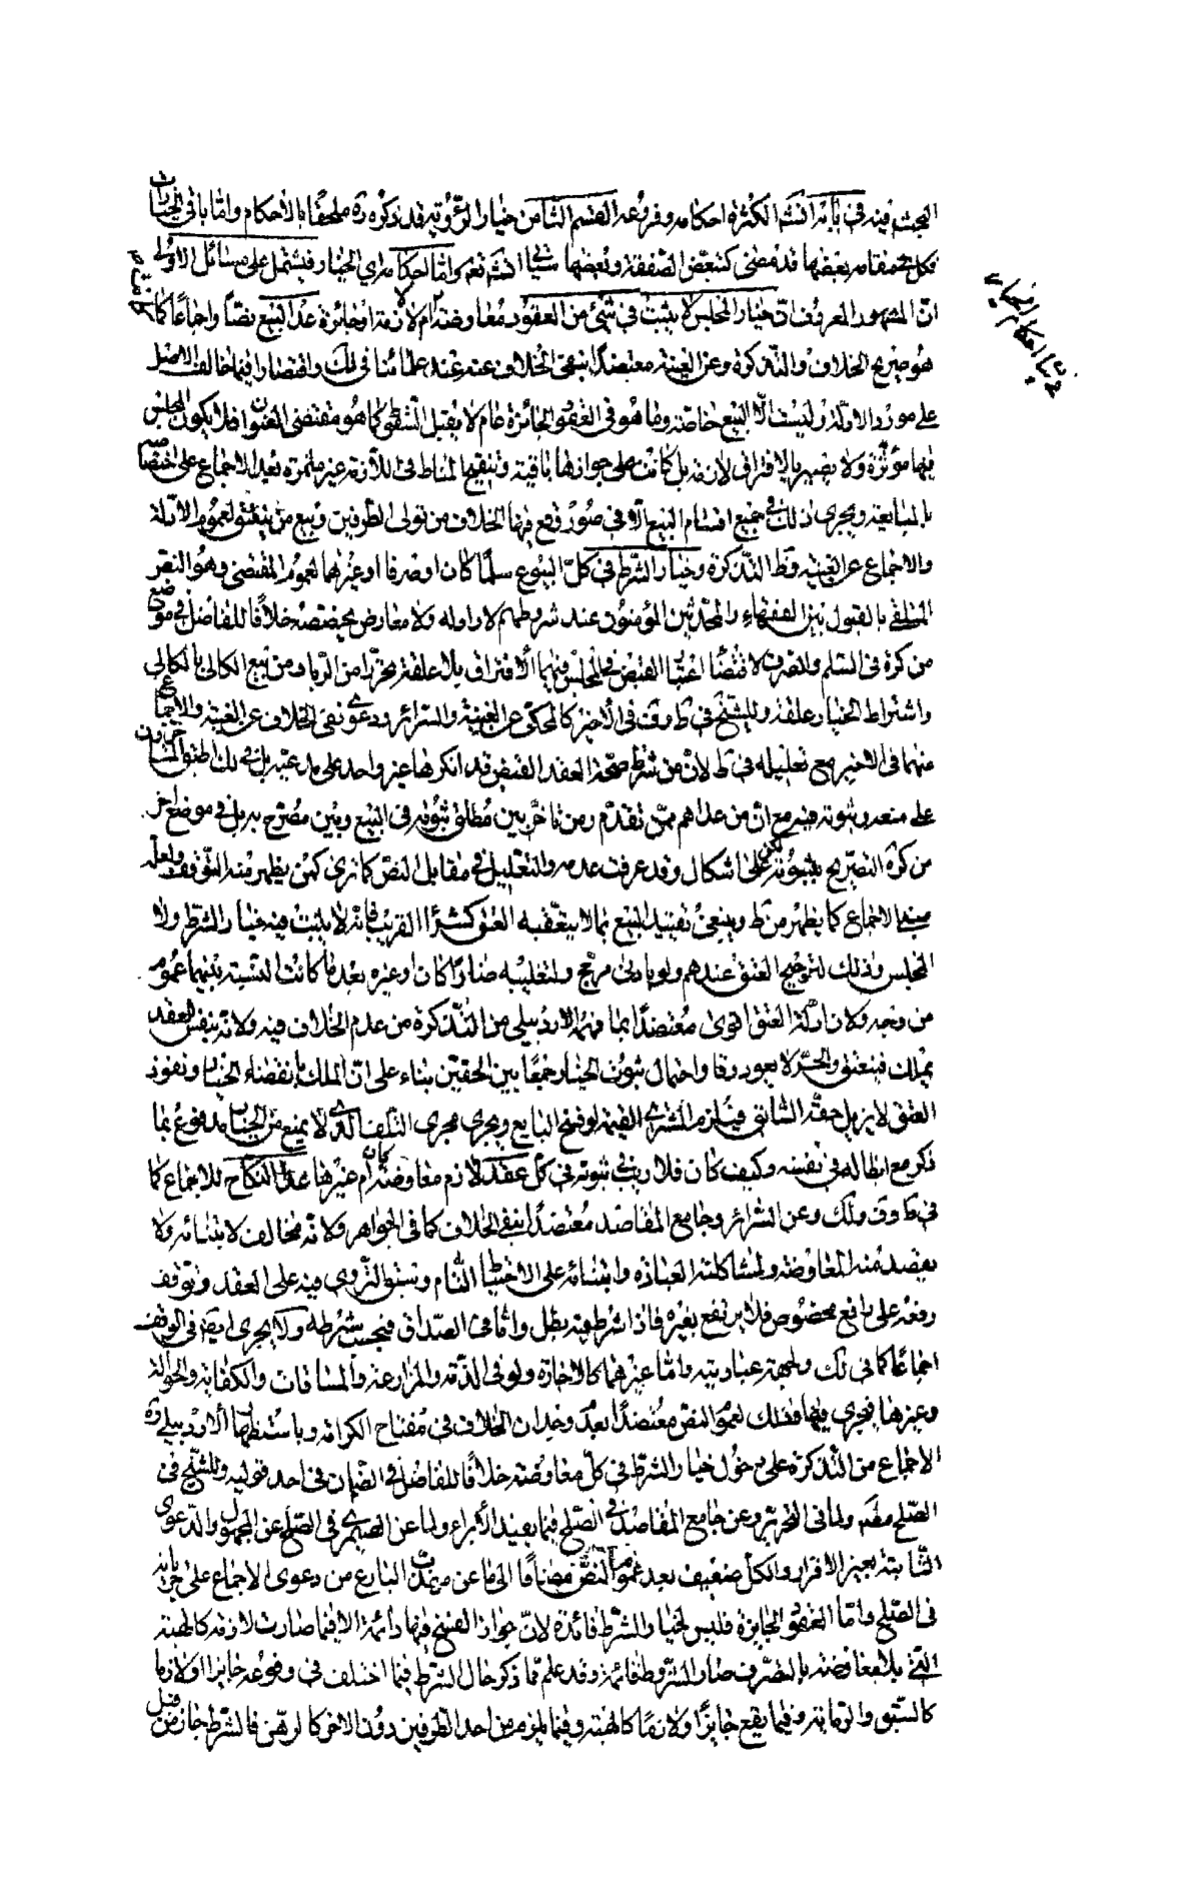 البحث فيه في بابه انشئم لكثرة احكامه وفروعه القسم الثامن خيار الرؤية قد ذكره ره ملحقا بالاحكام واما باقي الخيارات
فكل في مقامه بعضها قد مضى كتبعض الصفقة وبعضها سيجئ انشئم نعم واما احكامه اي الخيار فيشتمل على مسائل الاولى
ان المشهور المعروف ان خيار المجلس لا يثبت في شئ من العقود معاوضة كان ام لا لازمة او جائزة عدا البيع نصا واجماعا كما
هو صريح الخلاف والتذكرة وعن الغنية معتضدا بنفي الخلاف عنه عند علمائنا في لك واقتصارا فيما خالف الاصل
على مورد الادلة وليست الا البيع خاصة وما هو في العقود الجائزة عام لا يقبل السقوط كما هو مقتضى العنوان فلا يكون المجلس
فيها مؤثرة ولا يصير بالافتراق لازمة بل كانت على جوازها باقية وتنقيح المناط في اللازمة غير مثمرة بعد الاجماع على اختصاصه
بالمبايعة ويجري ذلك في جميع اقسام البيع الا في صور وقع فيها الخلاف من تولى الطرفين وبيع من ينعتق لعموم الادلة
والاجماع عن الغنية وظ التذكرة وخيار الشرط في كل البيوع سلما كان او صرفا او غيرهما لعموم المقتضى وهو النص
المتلقى بالقبول بين الفقهاء والمحدثين المؤمنون عند شروطهم لا راد له ولا معارض يخصصه خلافا للفاضل في موضع
من كرة في السلم والصرف لاقتضاء اعتبار القبض في المجلس فيهما الافتراق بلا علقة تحرزا من الربا ومن بيع الكالي بالكالي
واشتراط الخيار علقة وللشيخ في ط وق في الاخير كالمحكي عن الغنية والسرائر ودعوى نفي الخلاف عن الغنية والاجماع
منهما في الاخير مع تعليله في ط لان من شرط صحة العقد القبض قد انكرها غير واحد على مدعيه بل في لك اطبق المتاخرون
على منعه وثبوته فيه مع ان من عداهم ممن تقدم ومن تاخر بين مطلق ثبوته في البيع وبين مصرح به بل في موضع اخر
من كرة التصريح بثبوته لكن على اشكال وقد عرفت عدمه والتعليل في مقابل النص كما ترى كمن يظهر منه التوقف ولعله
مبني الاجماع كما يظهر من ط وينبغي تقييد البيع بما لا يتعقبه العتق كشراء القريب فانه لا يثبت فيه خيار الشرط ولا
المجلس وذلك لترجيح العتق عندهم ولو بادنى مرجح ولتغليبه ضارا كان او غيره بعد ما كانت النسبة بينهما عموم
من وجه ولان ادلة العتق اقوى معتضدا بما فهمه الاردبيلي من التذكرة من عدم الخلاف فيه ولانه بنفس العقد
يملك فينعتق والحر لا يعود رقا واحتمال ثبوت الخيار جمعا بين الحقين بناء على ان الملك بانقضاء الخيار ونفوذ
العتق لا يزيل حقه السابق فيلزم المشتري القيمة لو فسخ البايع ويجري مجرى التلف الذي لا يمنع من الخيار مدفوع بما
ذكر مع ابطاله في نفسه وكيف كان فلا ريب في ثبوته في كل عقد لازم معاوضة كان ام غيرها عدا النكاح للاجماع كما
في ط وق ولك وعن السرائر وجامع المقاصد معتضدا بنفي الخلاف كما في الجواهر ولانه مخالف لابتنائه ولا
يقصد منه المعاوضة ولمشاكلته العبادة وابتنائه على الاحتياط التام وسبق التروي فيه على العقد وتوقف
رفعه على رافع مخصوص فلا يرتفع بغيره فاذا شرط فيه بطل واما في الصداق فيجب بشرطه ولا يجري ايضا في الوقف
اجماعا كما في لك ولجهة عباديته واما غيرهما كالاجارة ولو في الذمة والمزارعة والمساقات والكفالة والحوالة
وغيرها فيجري فيها وذلك لعموم النص معتضدا بعدم وجدان الخلاف في مفتاح الكرامة وباستظهار الاردبيلي ره
الاجماع من التذكرة على دخول خيار الشرط في كل معاوضة خلافا للفاضل في الضمان في احد قوليه وللشيخ في
الصلح مطلقا ولما في التحرير وعن جامع المقاصد في الصلح فيما يفيد الابراء ولما عن الصيمري في الصلح عن المجهول والدعوى
الثابتة بغير الاقرار والكل ضعيف بعد عموم النص مضافا الى ما عن مهذب البارع من دعوى الاجماع على جريانه
في الصلح واما العقود الجايزة فليس لخيار الشرط فائدة لان جواز الفسخ فيها دائمة الا فيما صارت لازمة كالهبة
التي بلا معاوضة بالتصرف صار للشرط فائدة وقد علم مما ذكر حال الشرط فيما اختلف في وقوعه جايزا او لازما
كالسبق والرماية وفيما يقع جايزا ولازما كالهبة وفيما يلزم من احد الطرفين دون الاخر كالرهن فالشرط جاز من قبل